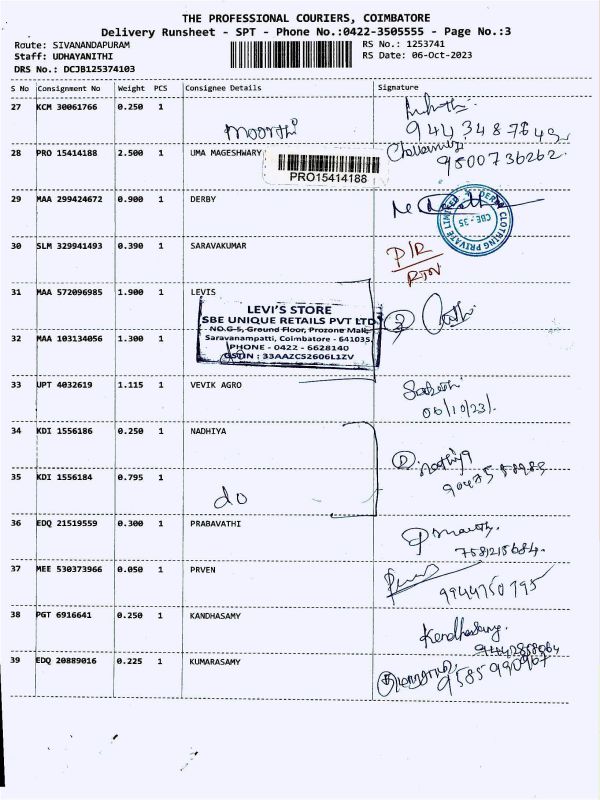 THE PROFESSIONAL COURIERS, COIMBATORE
Delivery Runsheet - SPT - Phone No.:0422-3505555 - Page No.:3
Route: SIVANANDAPURAM
RS No.: 1253741
Staff: UDHAYANITHI
RS Date: 06-Oct-2023
DRS No.: DCJB125374103
S No Consignment No Weight PCS Consignee Details Signature
27 KCM 30061766 0.250 1
moorthi
28 PRO 15414188 2.500 1 UMA MAGESHWARY
9500736262
PRO15414188
29 MAA 299424672 0.900 1 DERBY
DERBY CLOTHING PRIVATE LIMITED
CBE - 35
30 SLM 329941493 0.390 1 SARAVAKUMAR
P/R
RTN
31 MAA 572096985 1.900 1 LEVIS
LEVI'S STORE
SBE UNIQUE RETAILS PVT LTD
NO.G-5, Ground Floor, Prozone Mall,
Saravanampatti, Coimbatore - 641035
PHONE - 0422 - 6628140
GSTIN : 33AAZCS2606L1ZV
2
32 MAA 103134056 1.300 1
do
33 UPT 4032619 1.115 1 VEVIK AGRO
06/10/23/.
34 KDI 1556186 0.250 1 NADHIYA
2
35 KDI 1556184 0.795 1
do
36 EDQ 21519559 0.300 1 PRABAVATHI
37 MEE 530373966 0.050 1 PRVEN
9944750795
38 PGT 6916641 0.250 1 KANDHASAMY
Kandhasamy.
39 EDQ 20889016 0.225 1 KUMARASAMY
9585990967